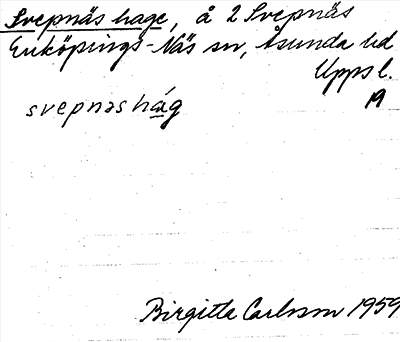 Svepnäs hage, å 2 Svepnäs
Enköpings-Näs sn, Åsunda hd
Upps l.
svepnas hág 19
Birgitta Carlsson 1959